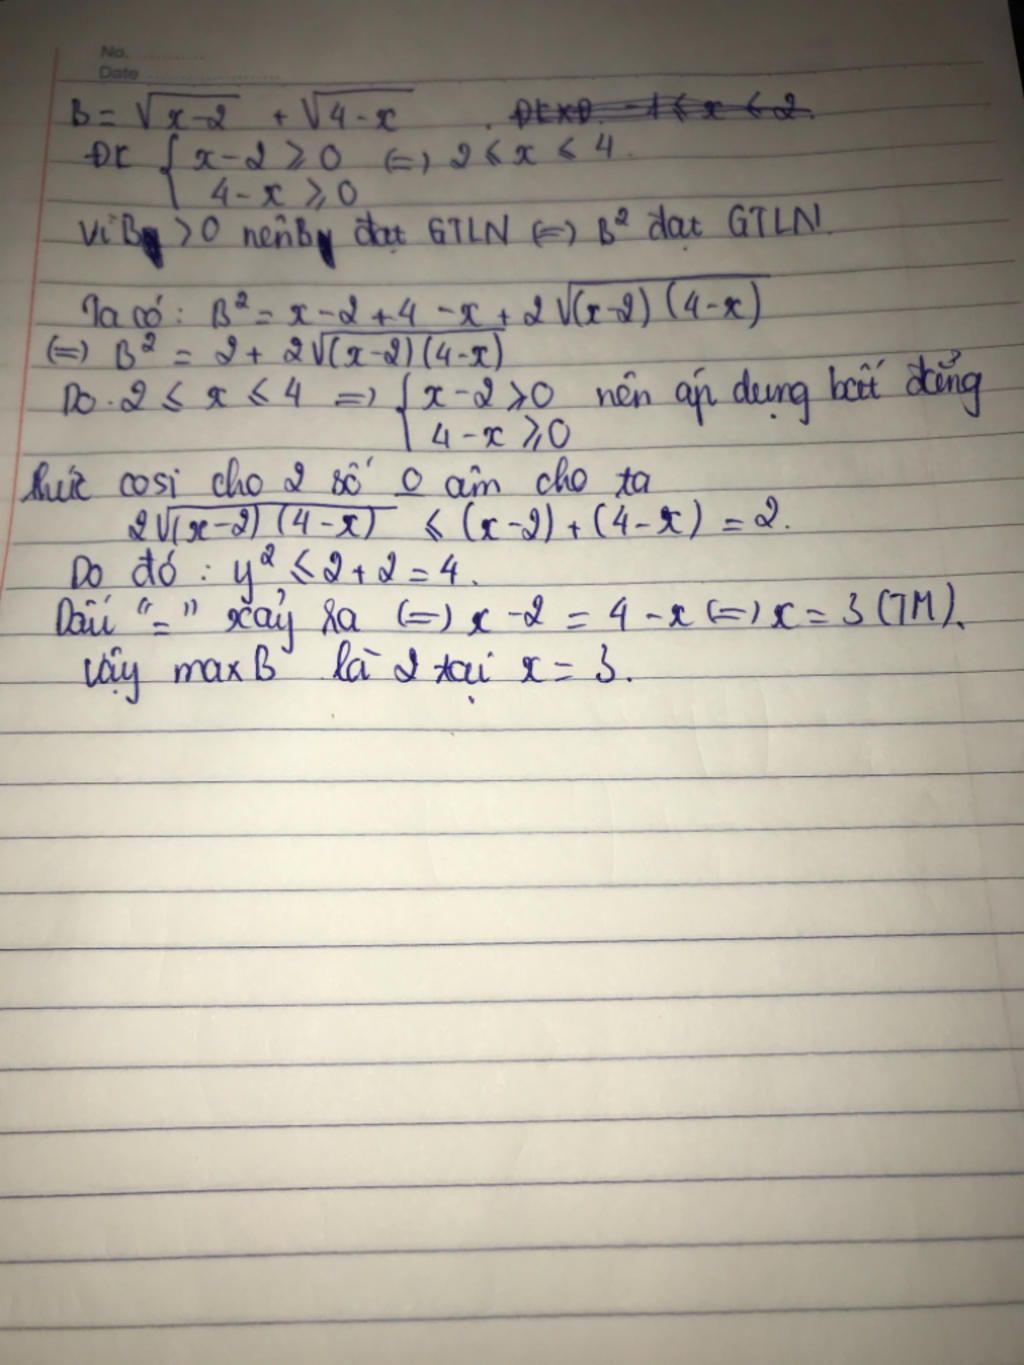 No.
Date
B = √(x-2) + √(4-x) . ĐKXĐ. -1 ≤ x ≤ 2.
ĐK { x-2 ≥ 0 (=) 2 ≤ x ≤ 4.
4-x ≥ 0
Vì B > 0 nên B đạt GTLN (=) B² đạt GTLN.
Ta có: B² = x-2+4-x+2√(x-2)(4-x)
(=) B² = 2+ 2√(x-2)(4-x)
Do 2 ≤ x ≤ 4 => { x-2 ≥ 0 nên áp dụng bất đẳng
4-x ≥ 0
thức cosi cho 2 số 0 âm cho ta
2√(x-2)(4-x) ≤ (x-2)+(4-x) = 2.
Do đó : y² ≤ 2+2 = 4.
Dấu "=" xảy ra (=) x-2 = 4-x (=) x = 3 (TM).
Vậy max B là 2 tại x = 3.